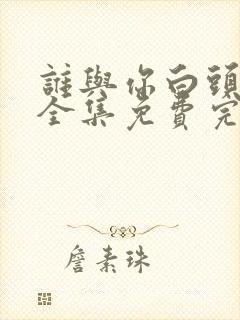 誰與你白頭
全集免費完
詹素珠